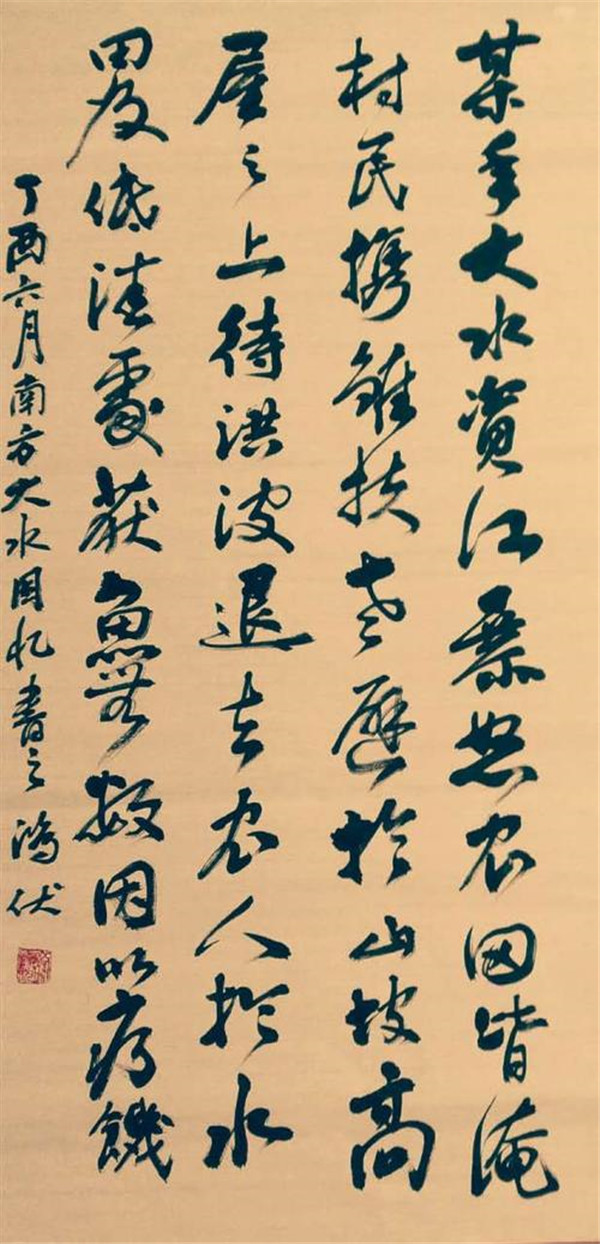 某年大水资江暴怒农田皆淹
村民携雏扶老避於山坡高
屋之上待洪波退去农人於水
田及低洼处获鱼无数因以疗饑
丁酉六月南方大水因忆书之 鸿伏